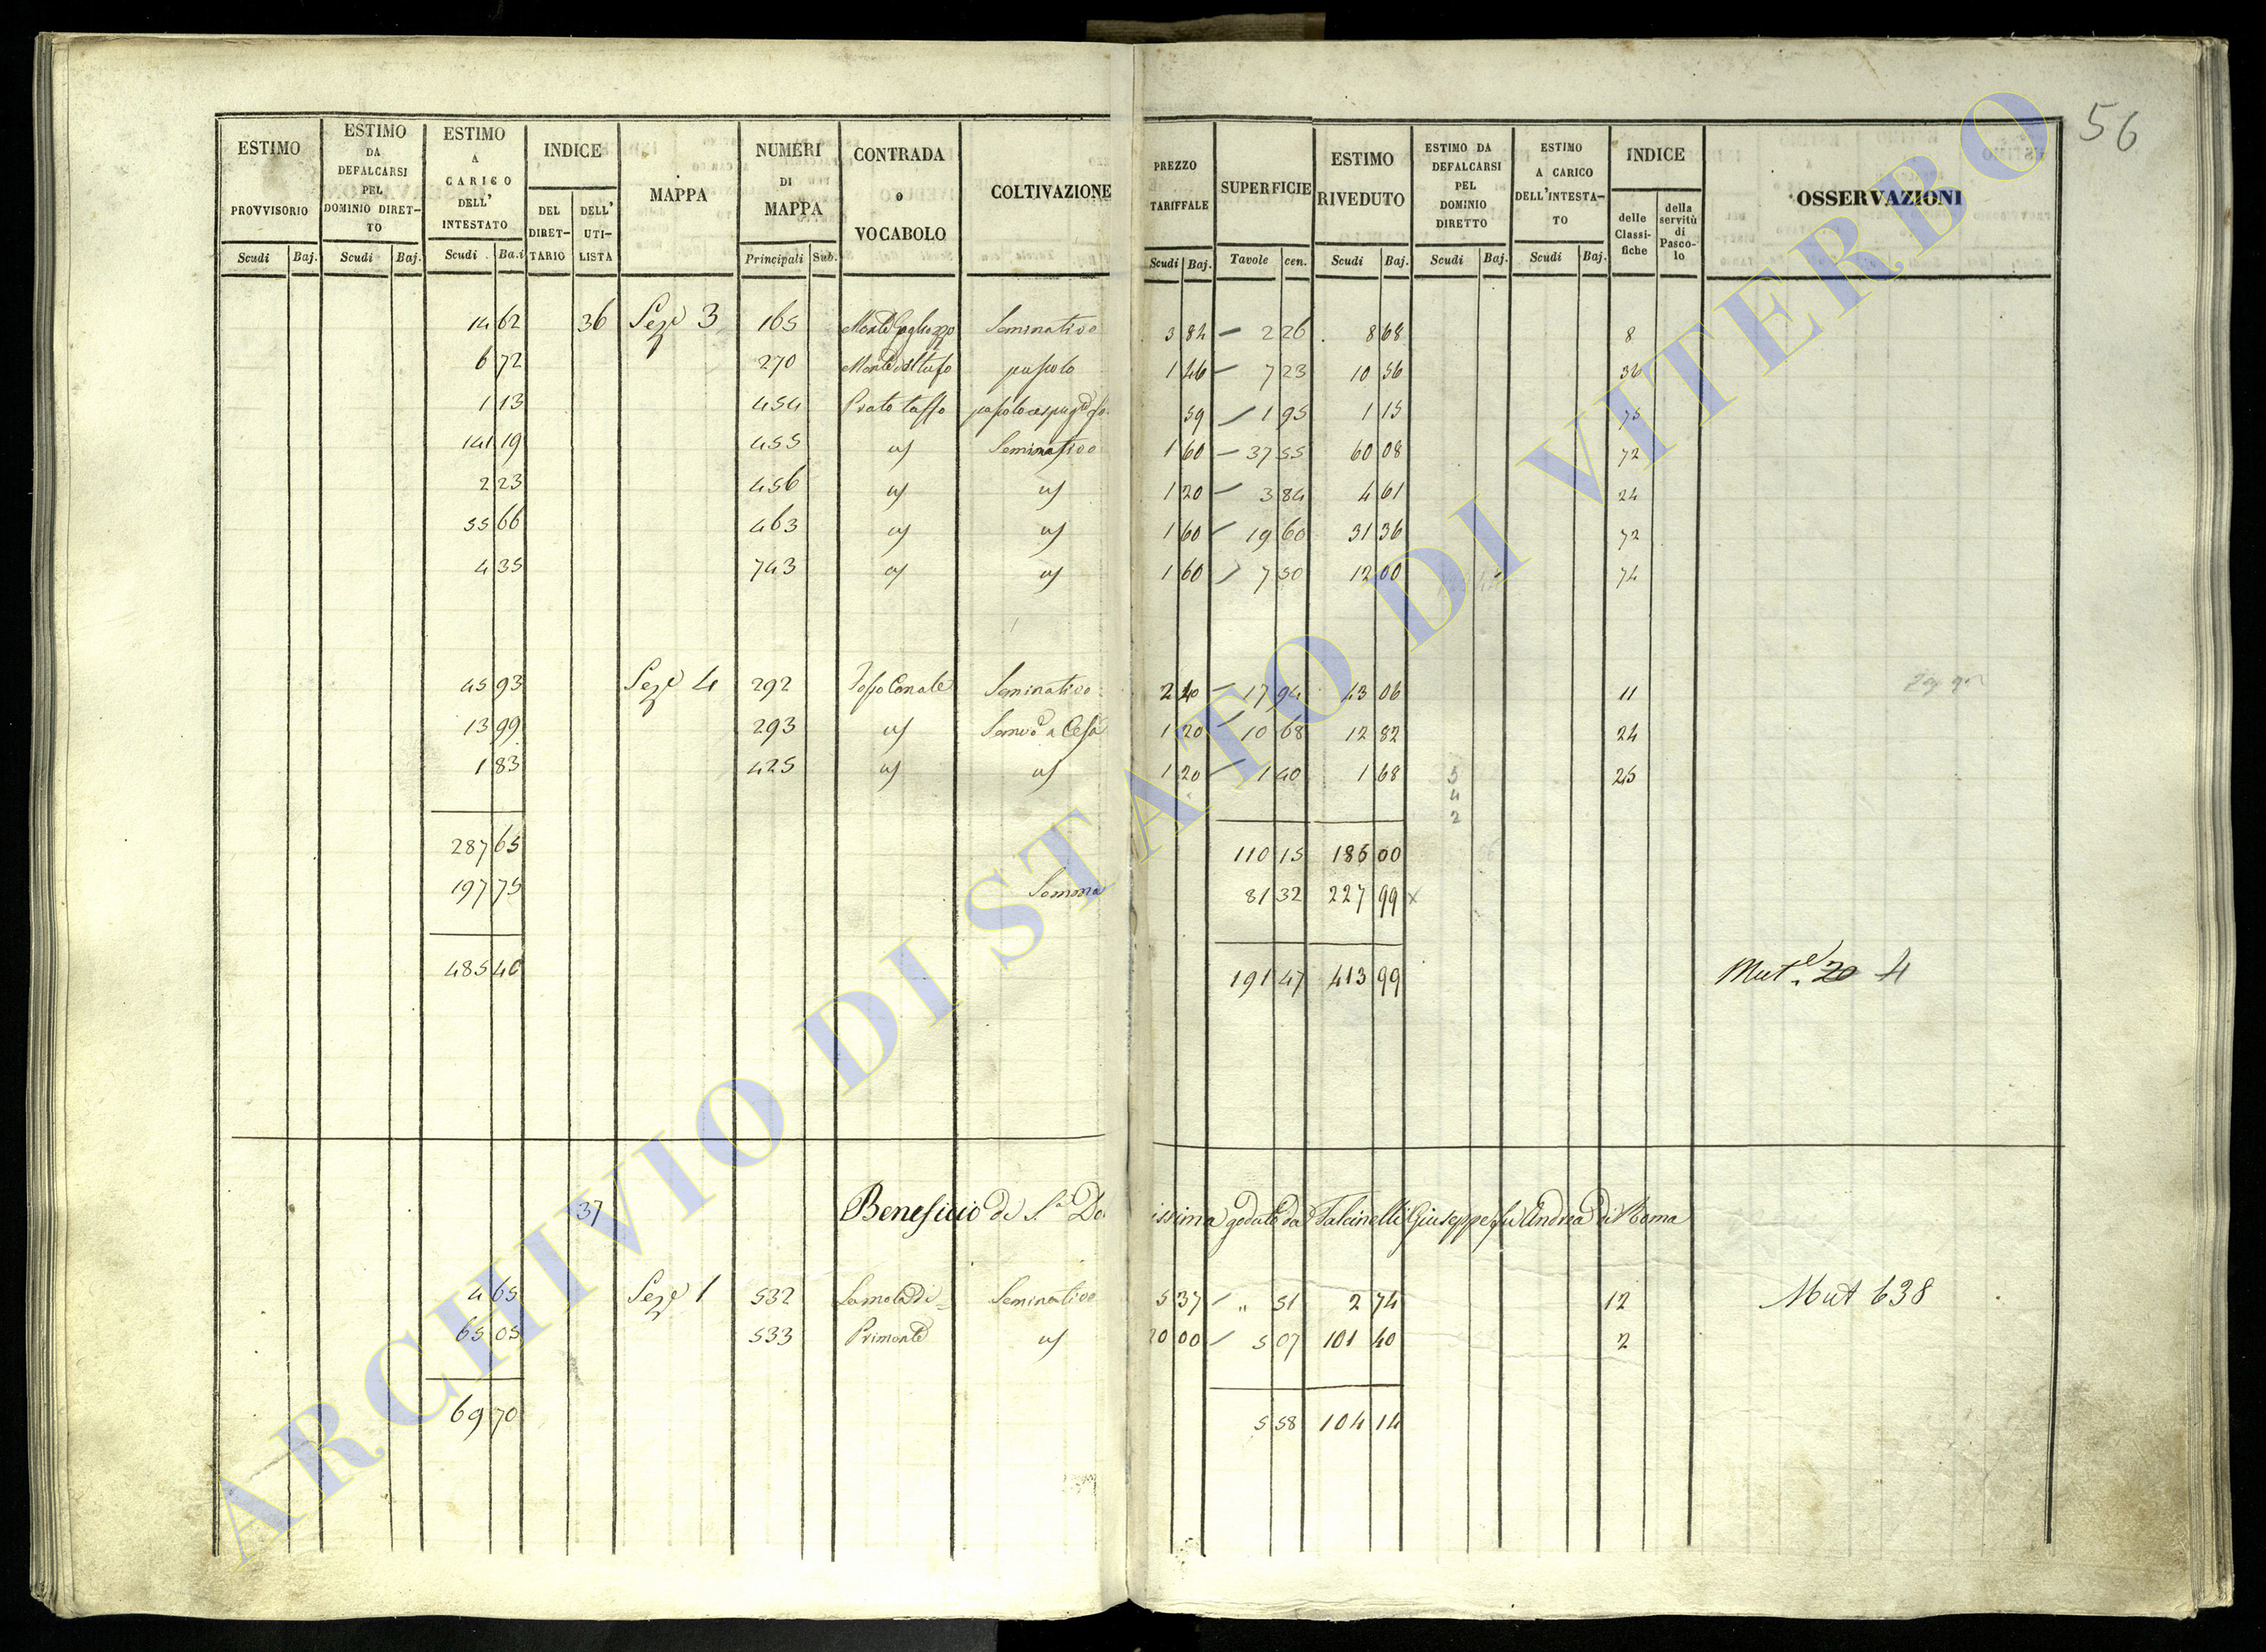 56
ESTIMO PROVVISORIO Scudi Baj.
ESTIMO DA DEFALCARSI PEL DOMINIO DIRET-TO Scudi Baj.
ESTIMO A CARICO DELL' INTESTATO Scudi Baj.
INDICE DEL DIRET-TARIO DELL' UTI-LISTA
MAPPA
NUMERI DI MAPPA Principali Sub.
CONTRADA o VOCABOLO
COLTIVAZIONE
PREZZO TARIFFALE Scudi Baj.
SUPERFICIE Tavole cen.
ESTIMO RIVEDUTO Scudi Baj.
ESTIMO DA DEFALCARSI PEL DOMINIO DIRETTO Scudi Baj.
ESTIMO A CARICO DELL'INTESTA-TO Scudi Baj.
INDICE delle Classi-fiche della servitù di Pasco-lo
OSSERVAZIONI
14 62 36 Seze 3 165 Seminativo 3 84 2 26 8 68 8
6 72 270 pascolo 1 46 7 23 10 56 36
1 13 454 Prato tasso 59 1 95 1 15 75
141 19 455 Seminativo 1 60 37 55 60 08 72
2 23 456 1 20 3 84 4 61 24
55 66 463 1 60 19 60 31 36 72
4 35 743 1 60 7 50 12 00 74
45 93 Seze 4 292 Fosso Canale Seminativo 2 40 17 94 43 06 11
13 99 293 1 20 10 68 12 82 24
1 83 425 1 20 1 40 1 68 25
5
4
2
287 65 110 15 186 00
197 75 Somma 81 32 227 99 x
485 40 191 47 413 99 Mute. 20 4
37 Beneficio di S.a Do issima goduto da Falcinelli Giuseppe fu Andrea di Roma
4 65 Seze 1 532 Seminativo 5 37 " 51 2 74 12 Mut 638
65 05 533 Primonte 20 00 5 07 101 40 2
69 70 5 58 104 14
ARCHIVIO DI STATO DI VITERBO